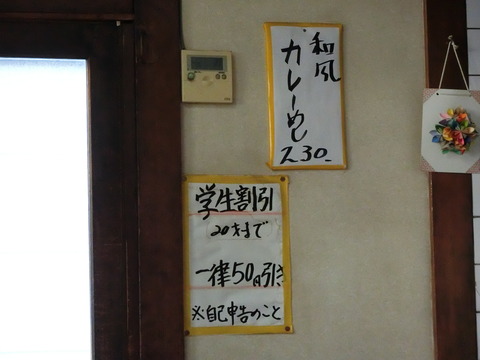 和風
カレーめし
230-
学生割引
20才まで
一律50円引き
※自己申告のこと